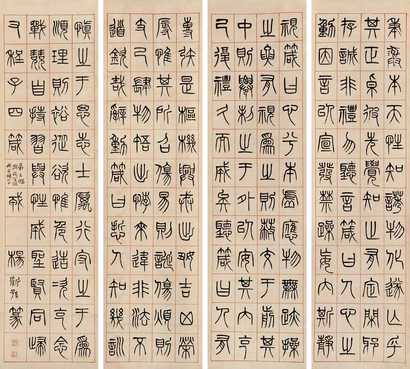 視箴曰心兮本虛應物無跡操
之有要視為之則蔽交於前其
中則遷制之於外以安其內克
己復禮久而誠矣聽箴曰人有
秉彝本乎天性知誘物化遂亡
其正卓彼先覺知止有定閑邪
存誠非禮勿聽言箴曰人心之
動因言以宣發禁躁妄內斯靜
專矧是樞機興戎出好吉凶榮
辱惟其所召傷易則誕傷煩則
支己肆物忤出悖來違非法不
道欽哉訓辭動箴曰哲人知幾
誠之於思志士勵行守之於為
順理則裕從欲惟危造次克念
戰兢自持習與性成聖賢同歸
右程子四箴 篆